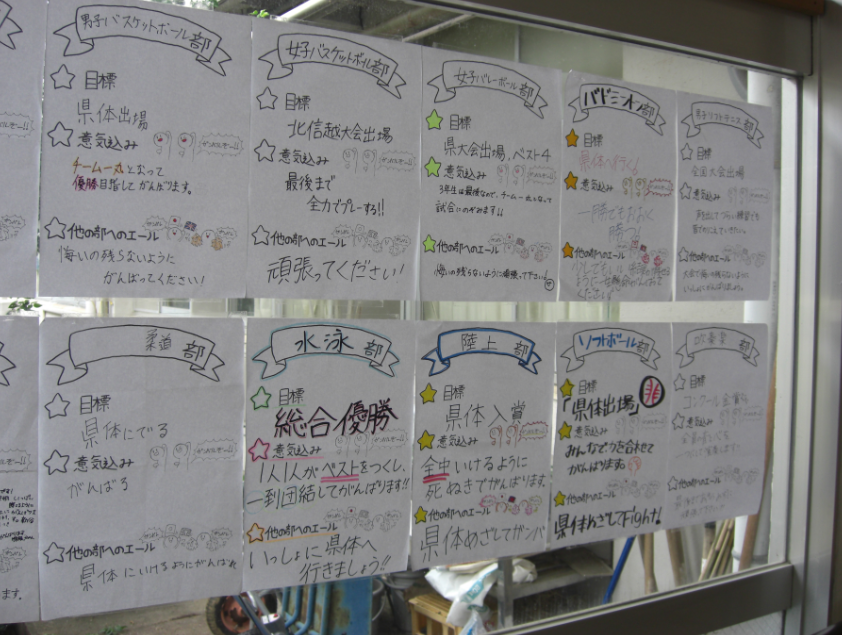 男子バスケットボール部
目標
県体出場
意気込み
チーム一丸となって
優勝目指してがんばります。
他の部へのエール
悔いの残らないように
がんばってください!
女子バスケットボール部
目標
北信越大会出場
意気込み
最後まで
全力でプレーする!!
他の部へのエール
頑張ってください!
女子バレーボール部
目標
県大会出場、ベスト4
意気込み
3年生は最後なので、チーム一丸となって
試合にのぞみます!!
他の部へのエール
悔いの残らないように頑張って下さい!
バドミントン部
目標
県体へ行く!
意気込み
一勝でもおおく
勝つ!
他の部へのエール
男子ソフトテニス部
目標
全国大会出場
意気込み
他の部へのエール
大会で悔いの残らないように
柔道部
目標
県体にでる
意気込み
がんばる
他の部へのエール
県体にいけるようにがんばれ
水泳部
目標
総合優勝
意気込み
1人1人がベストをつくし、
一到団結してがんばります!!
他の部へのエール
いっしょに県体へ
行きましょう!!
陸上部
目標
県体入賞
意気込み
全中いけるように
死ぬきでがんばります。
他の部へのエール
県体めざしてガンバ
ソフトボール部
目標
「県体出場」
意気込み
みんなで力を合わせて
がんばります。
他の部へのエール
県体めざしてFight!
吹奏楽部
目標
コンクール金賞
意気込み
他の部へのエール